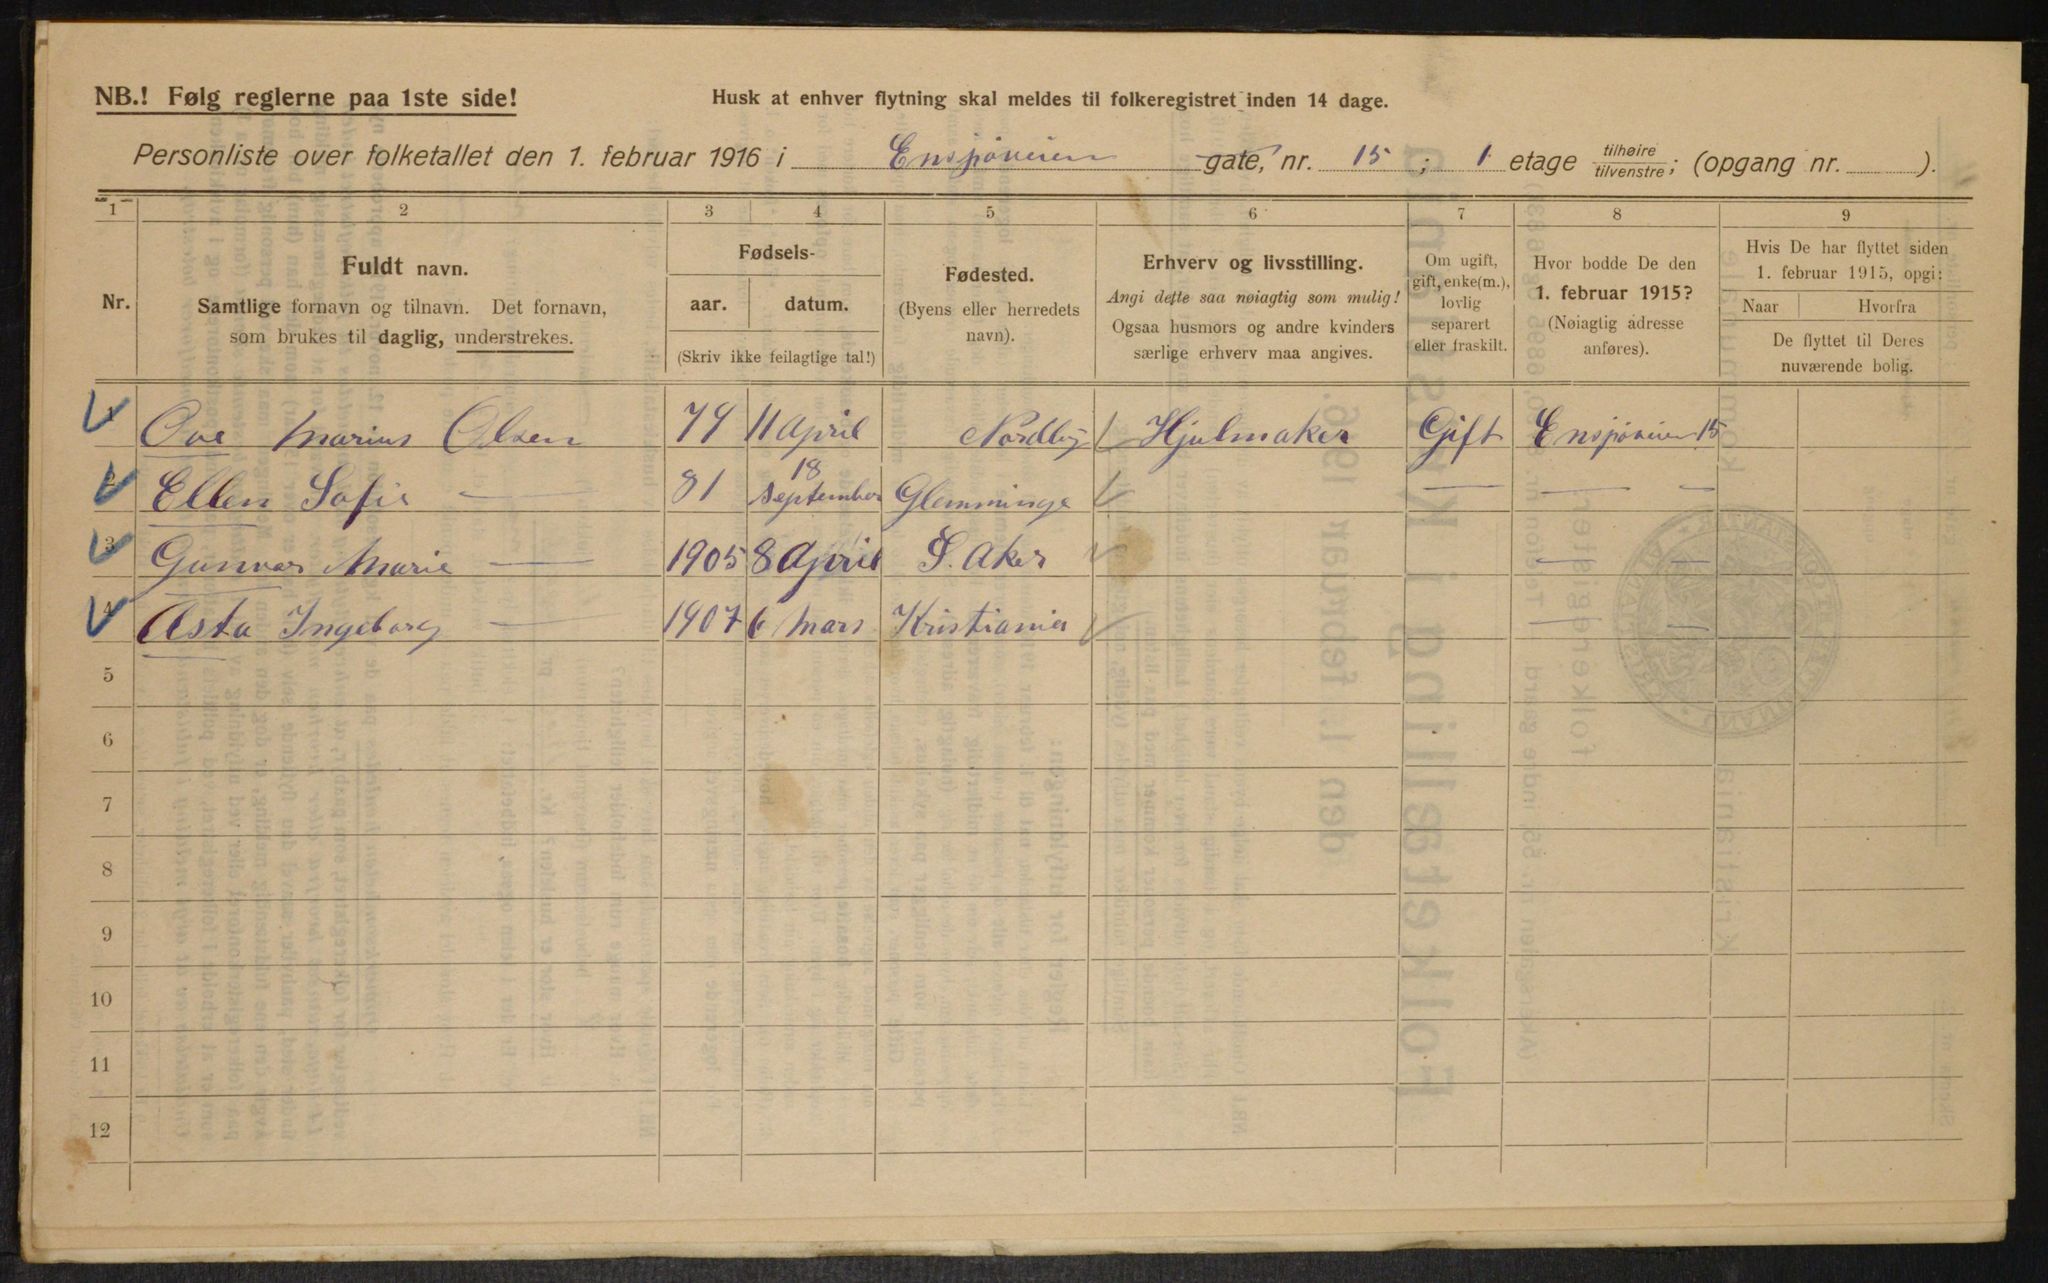 NB.! Følg reglerne paa 1ste side!
Husk at enhver flytning skal meldes til folkeregistret inden 14 dage.
Personliste over folketallet den 1. februar 1916 i Ensjøveien gate, nr. 15 ; 1 etage tilhøire/tilvenstre; (opgang nr. ).
1 2 3 4 5 6 7 8 9
Nr.
Fuldt navn.
Samtlige fornavn og tilnavn. Det fornavn,
som brukes til daglig, understrekes.
Fødsels-
aar. datum.
(Skriv ikke feilagtige tal!)
Fødested.
(Byens eller herredets
navn).
Erhverv og livsstilling.
Angi dette saa nøiagtig som mulig!
Ogsaa husmors og andre kvinders
særlige erhverv maa angives.
Om ugift,
gift, enke(m.),
lovlig
separert
eller fraskilt.
Hvor bodde De den
1. februar 1915?
(Nøiagtig adresse
anføres).
Hvis De har flyttet siden
1. februar 1915, opgi:
Naar Hvorfra
De flyttet til Deres
nuværende bolig.
1 Ove Marius Olsen 79 11 April Nordby Hjulmaker Gift Ensjøveien 15
2 Ellen Sofie — 81 18 September Glemminge — — —
3 Gunvor Marie — 1905 8 April S. Aker — —
4 Asta Ingeborg — 1907 6 Mars Kristiania — —
5
6
7
8
9
10
11
12